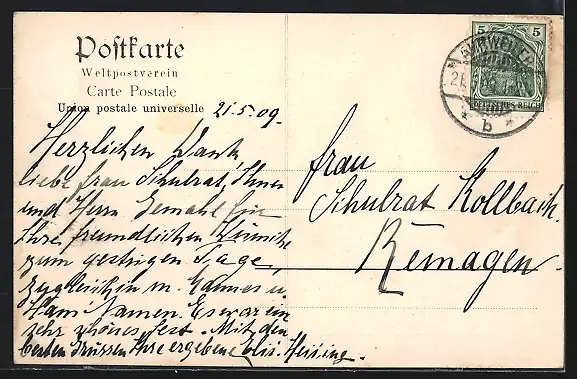 Postkarte
Weltpostverein
Carte Postale
Union postale universelle
21.5.09.
Herzlichen Dank
liebe Frau Schulrat, Ihnen
und Herrn Gemahl für
Ihre freundlichen Wünsche
zum gestrigen Tage,
zugleich in m. Mannes u.
Hans' Namen. Es war ein
sehr schönes Fest. Mit den
besten Grüssen Ihre ergebene Elis. Heising.
5 5
AHRWEILER
21.
DEUTSCHES REICH
* b *
Frau
Schulrat Kollbach.
Remagen.